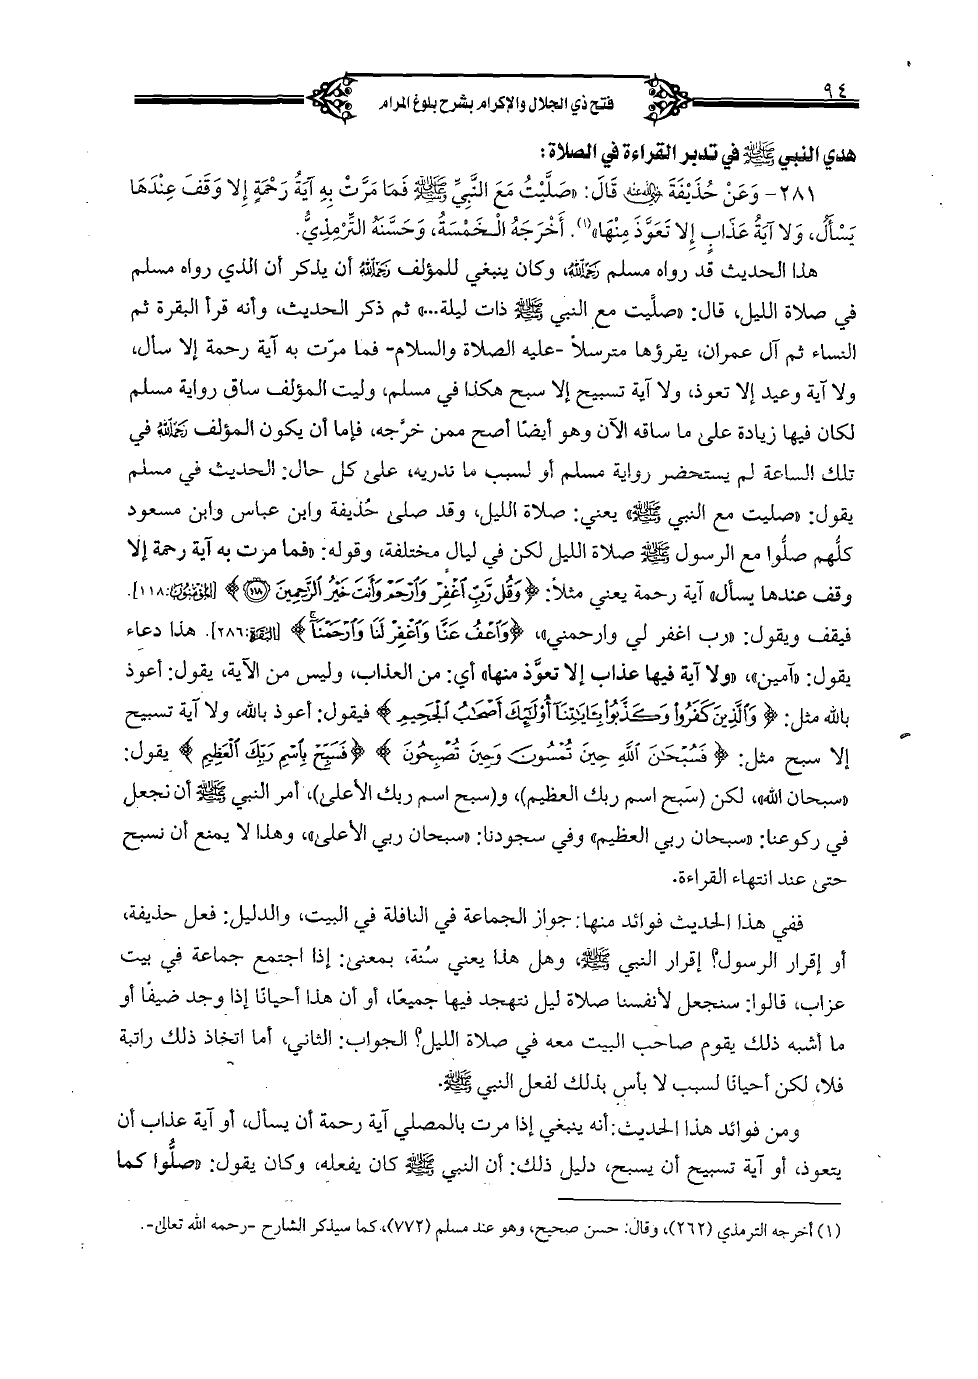 ٩٤
فتح ذي الجلال والإكرام بشرح بلوغ المرام
هدي النبي ﷺ في تدبر القراءة في الصلاة:
٢٨١- وَعَنْ حُذَيْفَةَ رضي الله عنه قَالَ: «صَلَّيْتُ مَعَ النَّبِيِّ ﷺ فَمَا مَرَّتْ بِهِ آيَةُ رَحْمَةٍ إِلا وَقَفَ عِنْدَهَا
يَسْأَلُ، وَلا آيَةُ عَذَابٍ إِلا تَعَوَّذَ مِنْهَا»(١). أَخْرَجَهُ الْخَمْسَةُ، وَحَسَّنَهُ التِّرْمِذِيُّ.
هذا الحديث قد رواه مسلم رحمه الله، وكان ينبغي للمؤلف رحمه الله أن يذكر أن الذي رواه مسلم
في صلاة الليل، قال: «صليت مع النبي ﷺ ذات ليلة...» ثم ذكر الحديث، وأنه قرأ البقرة ثم
النساء ثم آل عمران، يقرؤها مترسلاً -عليه الصلاة والسلام- فما مرّت به آية رحمة إلا سأل،
ولا آية وعيد إلا تعوذ، ولا آية تسبيح إلا سبح هكذا في مسلم، وليت المؤلف ساق رواية مسلم
لكان فيها زيادة على ما ساقه الآن وهو أيضًا أصح ممن خرَّجه، فإما أن يكون المؤلف رحمه الله في
تلك الساعة لم يستحضر رواية مسلم أو لسبب ما ندريه، على كل حال: الحديث في مسلم
يقول: «صليت مع النبي ﷺ» يعني: صلاة الليل، وقد صلى حُذيفة وابن عباس وابن مسعود
كلُّهم صلُّوا مع الرسول ﷺ صلاة الليل لكن في ليال مختلفة، وقوله: «فما مرت به آية رحمة إلا
وقف عندها يسأل» آية رحمة يعني مثلاً: ﴿وَقُل رَّبِّ ٱغْفِرْ وَٱرْحَمْ وَأَنتَ خَيْرُ ٱلرَّٰحِمِينَ ١١٨﴾ [المؤمنون: ١١٨].
فيقف ويقول: «رب اغفر لي وارحمني»، ﴿وَٱعْفُ عَنَّا وَٱغْفِرْ لَنَا وَٱرْحَمْنَآ﴾ [البقرة: ٢٨٦]. هذا دعاء
يقول: «آمين»، «ولا آية فيها عذاب إلا تعوَّذ منها» أي: من العذاب، وليس من الآية، يقول: أعوذ
بالله مثل: ﴿وَٱلَّذِينَ كَفَرُوا۟ وَكَذَّبُوا۟ بِـَٔايَـٰتِنَآ أُو۟لَـٰٓئِكَ أَصْحَـٰبُ ٱلْجَحِيمِ﴾ فيقول: أعوذ بالله، ولا آية تسبيح
إلا سبح مثل: ﴿فَسُبْحَـٰنَ ٱللَّهِ حِينَ تُمْسُونَ وَحِينَ تُصْبِحُونَ﴾ ﴿فَسَبِّحْ بِٱسْمِ رَبِّكَ ٱلْعَظِيمِ﴾ يقول:
«سبحان الله»، لكن (سَبح اسم ربك العظيم)، و(سبح اسم ربك الأعلى)، أمر النبي ﷺ أن نجعل
في ركوعنا: «سبحان ربي العظيم» وفي سجودنا: «سبحان ربي الأعلى»، وهذا لا يمنع أن نسبح
حتى عند انتهاء القراءة.
ففي هذا الحديث فوائد منها: جواز الجماعة في النافلة في البيت، والدليل: فعل حذيفة،
أو إقرار الرسول؟ إقرار النبي ﷺ، وهل هذا يعني سُنة، بمعنى: إذا اجتمع جماعة في بيت
عزاب، قالوا: سنجعل لأنفسنا صلاة ليل نتهجد فيها جميعًا، أو أن هذا أحيانًا إذا وجد ضيفًا أو
ما أشبه ذلك يقوم صاحب البيت معه في صلاة الليل؟ الجواب: الثاني، أما اتخاذ ذلك راتبة
فلا، لكن أحيانًا لسبب لا بأس بذلك لفعل النبي ﷺ.
ومن فوائد هذا الحديث: أنه ينبغي إذا مرت بالمصلي آية رحمة أن يسأل، أو آية عذاب أن
يتعوذ، أو آية تسبيح أن يسبح، دليل ذلك: أن النبي ﷺ كان يفعله، وكان يقول: «صلُّوا كما
(١) أخرجه الترمذي (٢٦٢)، وقال: حسن صحيح، وهو عند مسلم (٧٧٢)، كما سيذكر الشارح -رحمه الله تعالى-.